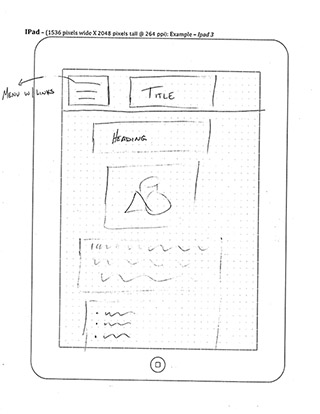 IPad - (1536 pixels wide X 2048 pixels tall @ 264 ppi): Example - Ipad 3
MENU W/ LINKS
TITLE
HEADING